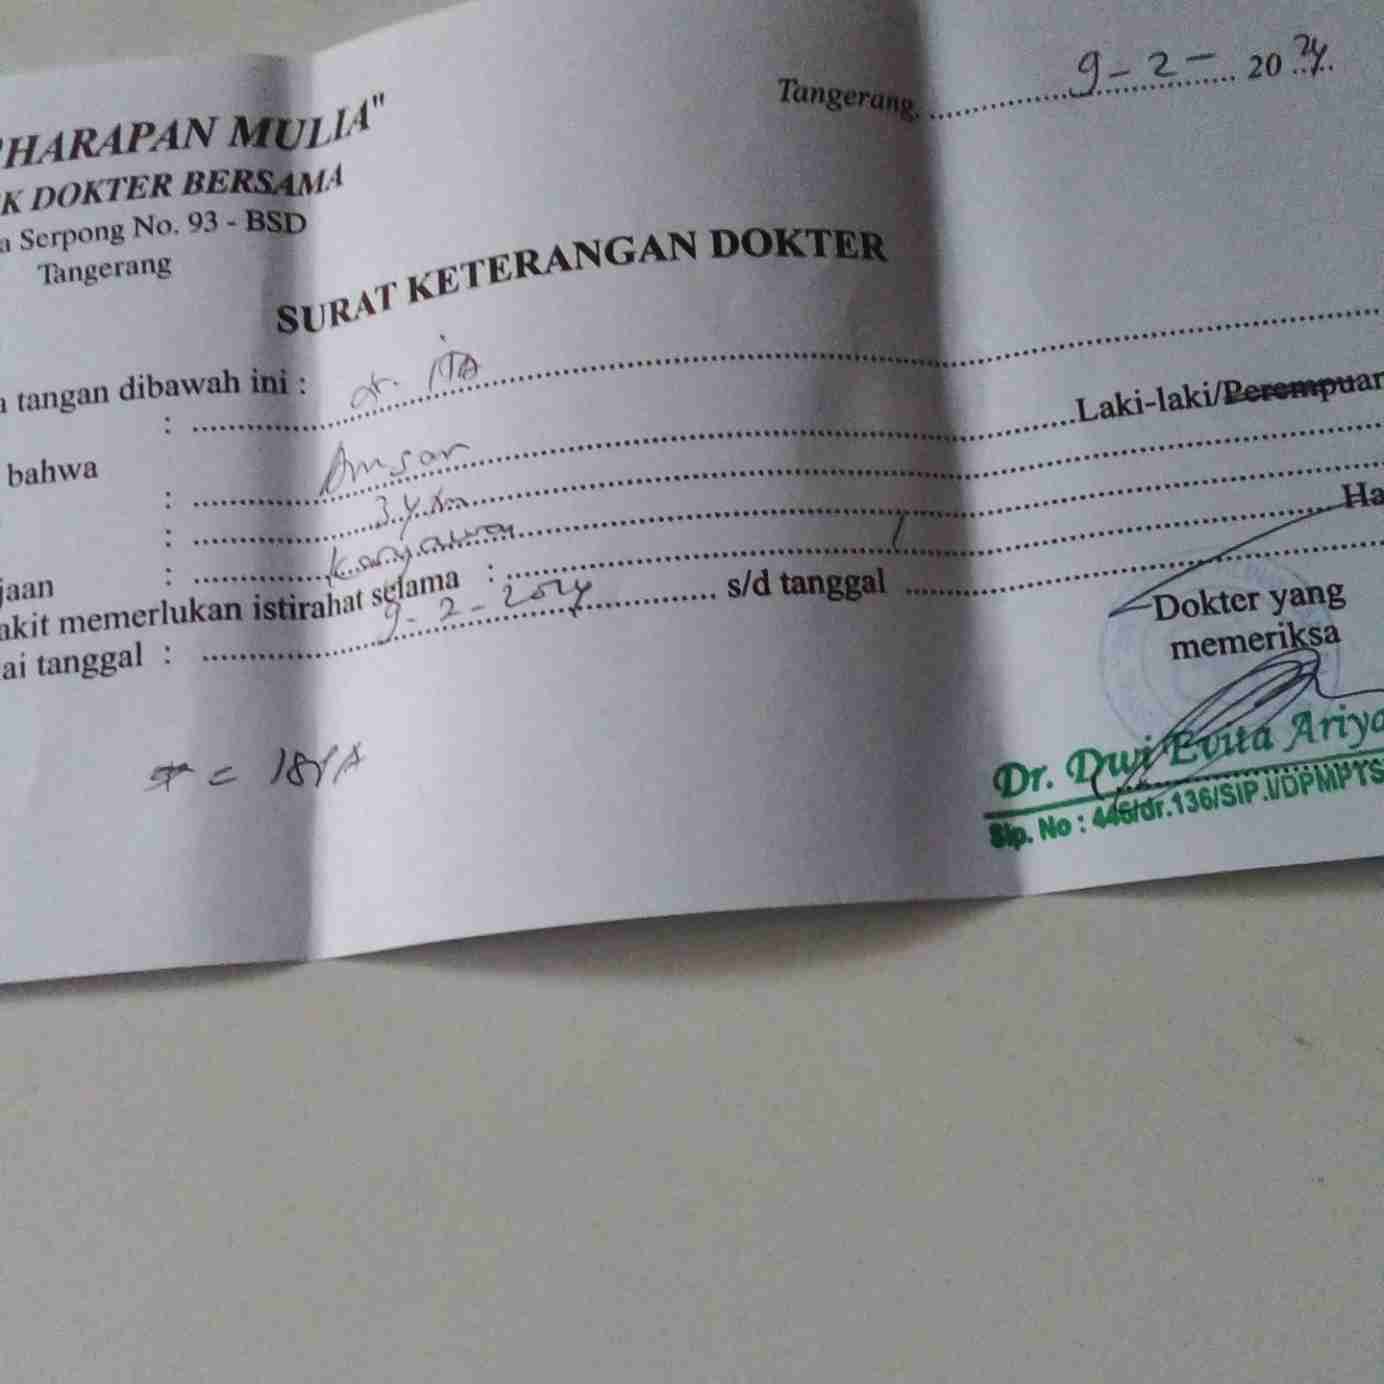 "HARAPAN MULIA"
K DOKTER BERSAMA
a Serpong No. 93 - BSD
Tangerang
Tangerang, 9 - 2 - 2024
SURAT KETERANGAN DOKTER
a tangan dibawah ini : dr. ITA
:
bahwa : Ansar Laki-laki/Perempuan
: 34 th
jaan : Karyawan
akit memerlukan istirahat selama : 1 Ha
ai tanggal : 9 - 2 - 2024 s/d tanggal
Dokter yang
memeriksa
Dr. Dwi Evita Ariya
Sip. No : 445/dr.136/SIP.I/DPMPTS